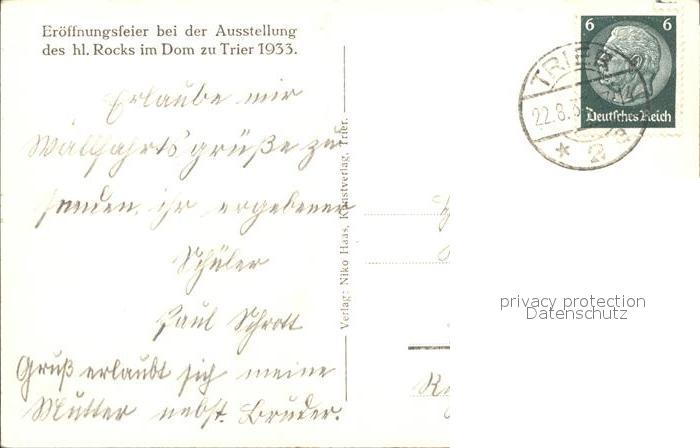 Eröffnungsfeier bei der Ausstellung
des hl. Rocks im Dom zu Trier 1933.
Erlaube mir
Wallfahrtsgrüße zu
senden, ihr ergebener
Schüler
Paul Schrott
Gruß erlaubt sich meine
Mutter nebst Bruder.
Verlag: Niko Haas, Kunstverlag, Trier.
6 6
Deutsches Reich
TRIER
22.8.3
* 2a
privacy protection
Datenschutz